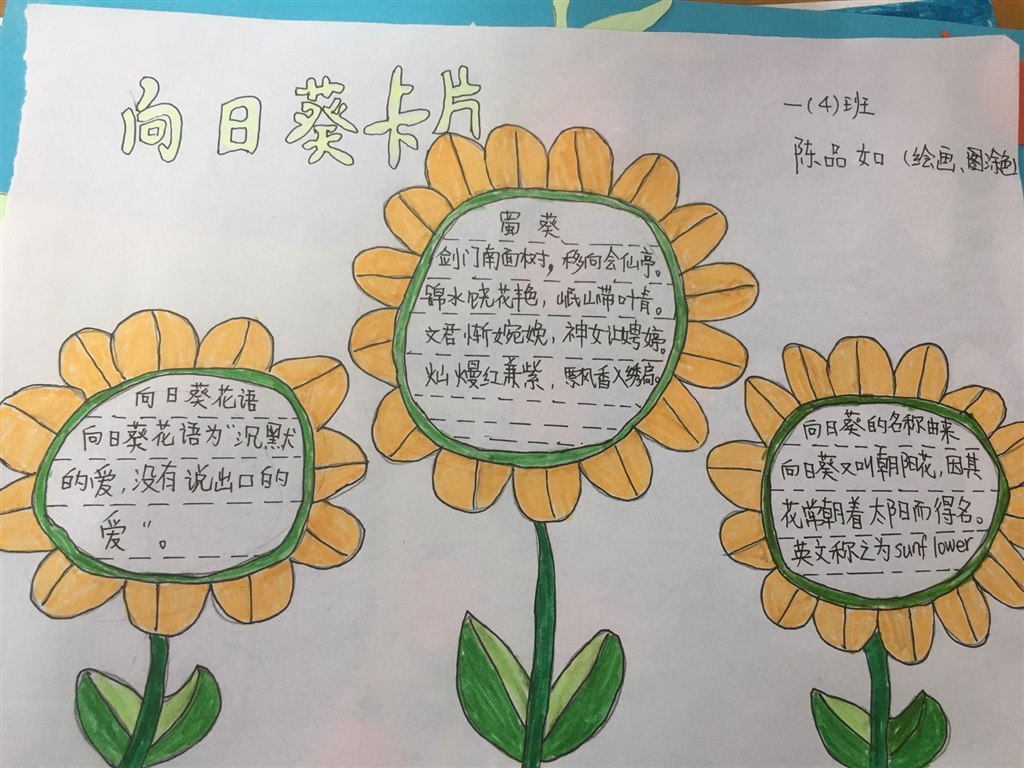 向日葵卡片
一(4)班
陈品如(绘画、图涂色)
蜀葵
剑门南面树，移向会仙亭。
锦水饶花艳，岷山带叶青。
文君惭婉娩，神女让娉婷。
灿熳红兼紫，飘香入绣扃。
向日葵花语
向日葵花语为“沉默
的爱，没有说出口的
爱”。
向日葵的名称由来
向日葵又叫朝阳花，因其
花常朝着太阳而得名。
英文称之为sunflower